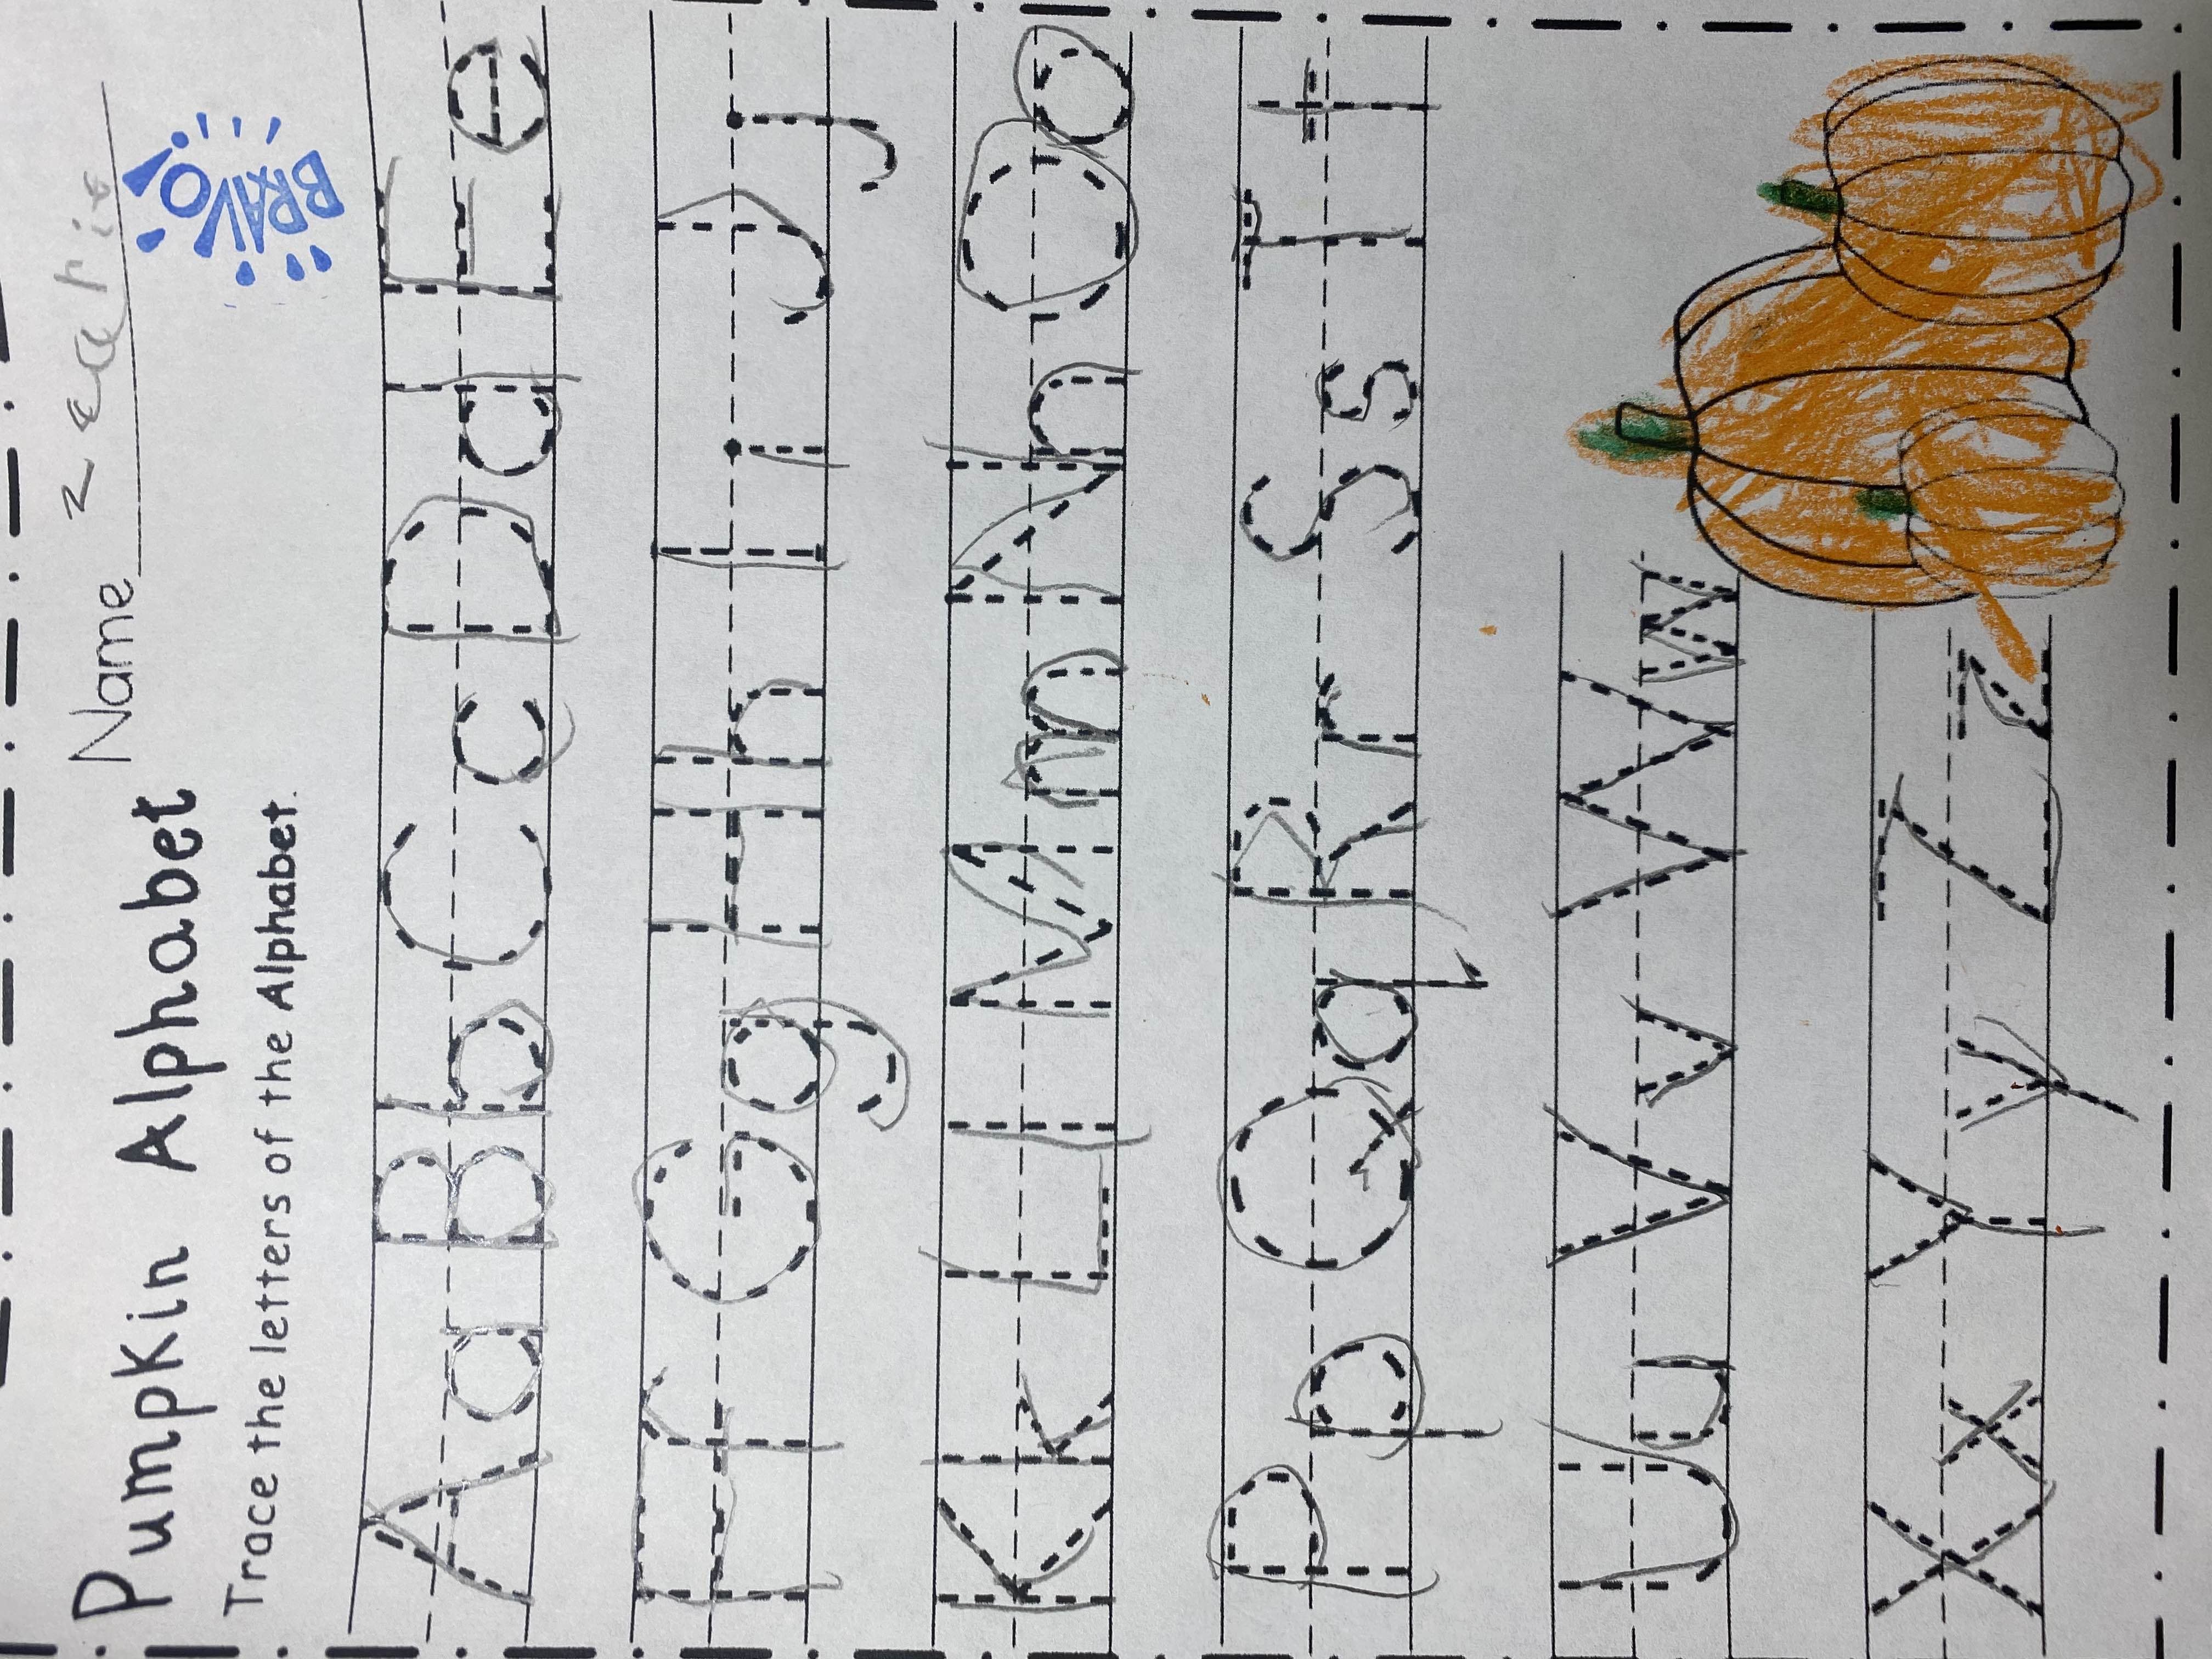 Name
Pumpkin Alphabet
BRAVO!
Trace the letters of the Alphabet.
A a B b C c D d E e
F f G g H h I i J j
K k L l M m N n O o
P p Q q R r S s T t
U u V v W w
X x Y y Z z